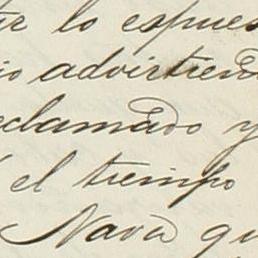 lo espues
advirtiend
clamado y
el tiempo
Nava qu